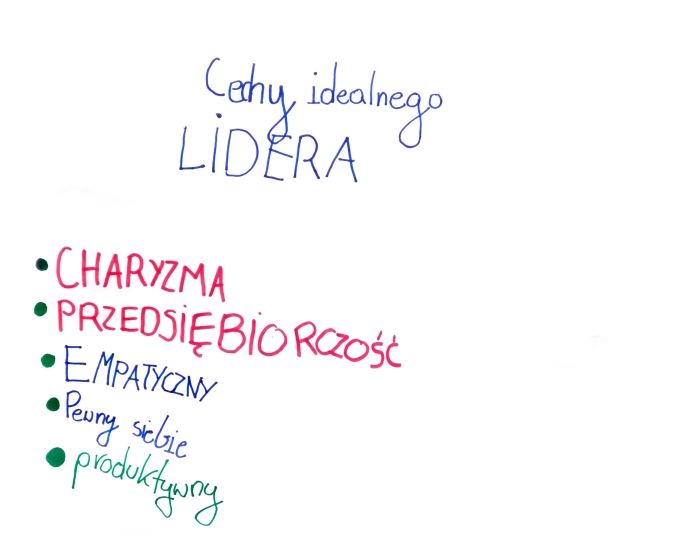 Cechy idealnego
LIDERA
• CHARYZMA
• PRZEDSIĘBIORCZOŚĆ
• EMPATYCZNY
• Pewny siebie
• produktywny